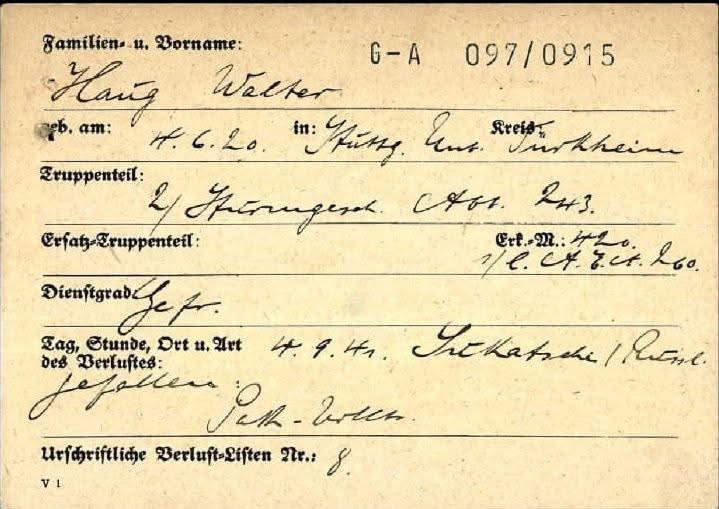 Familien- u. Vorname: G-A 097/0915
Haug Walter
geb. am: 4.6.20. in: Stuttg. Unt. Kreis: Türkheim
Truppenteil:
2/ Sturmgesch. Abt. 243.
Ersatz-Truppenteil: Erk.-M.: 420.
1/l. A. E. A. 260.
Dienstgrad: Gefr.
Tag, Stunde, Ort u. Art 4.9.41. / Russl.
des Verlustes:
gefallen:
Urschriftliche Verlust-Listen Nr.: 8.
V 1